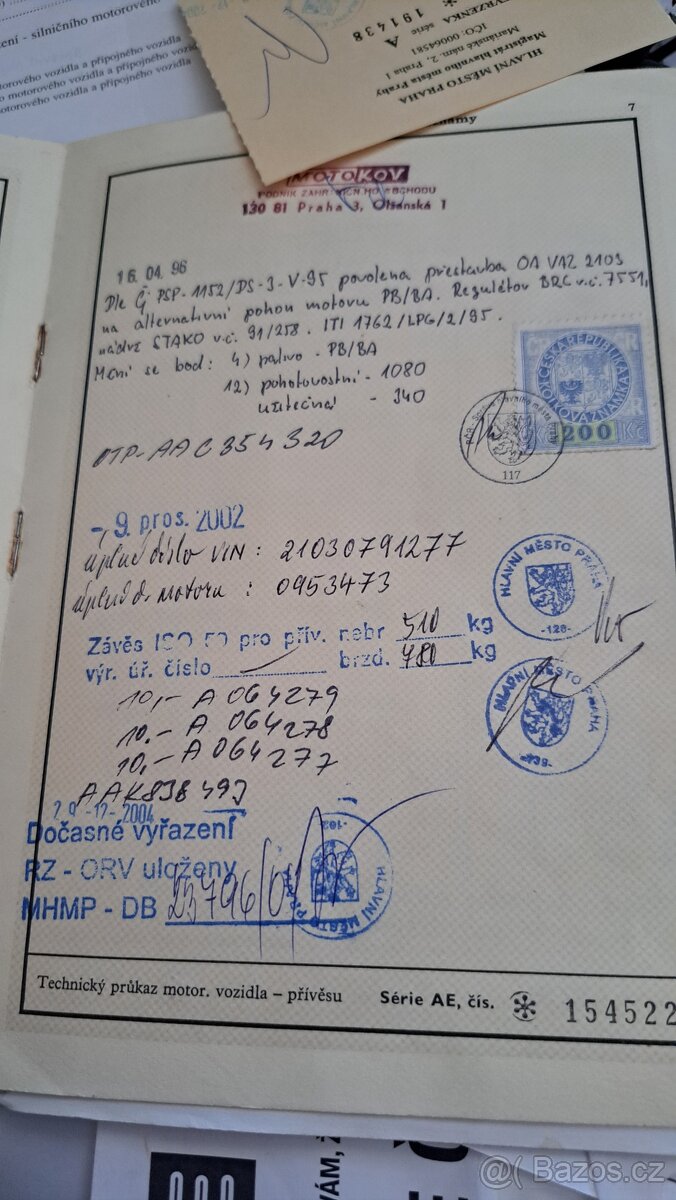 ení - silničního motorového
otorového vozidla a přípojného vozidla
o motorového vozidla a přípojného vozidla
otorového vozidla a přípojného vozidla
HLAVNÍ MĚSTO PRAHA
Magistrát hlavního města Prahy
Mariánské nám. 2, Praha 1
IČO: 00064581
VRZENKA série A
* 191438
7
namy
MOTOKOV
PODNIK ZAHR
130 81 Praha 3, Olšanská 1
16. 04. 96
Dle Č. PSP-1152/DS-3-V-95 povolena přestavba OA VAZ 2103
na alternativní pohon motoru PB/BA. Regulátor BRC v.č. 7551,
nádrž STAKO v.č. 91/258. ITI 1762/LPG/2/95.
Mění se bod: 4) palivo - PB/BA
12) pohotovostní - 1080
užitečná - 340
ČESKÁ REPUBLIKA
KOLKOVÁ ZNÁMKA
200 Kč
117
OTP-AAC354320
- 9. pros. 2002
úplné číslo VIN : 21030791277
úplné č. motoru : 0953473
HLAVNÍ MĚSTO PRAHA
-128-
Závěs ISO 50 pro přív. nebr 510 kg
výr. úř. číslo brzd. 780 kg
10,- A 064279
10,- A 064278
10,- A 064277
HLAVNÍ MĚSTO PRAHA
-139-
29 -12- 2004
Dočasné vyřazení
RZ - ORV uloženy
MHMP - DB 23796/04
HLAVNÍ MĚSTO PRAHA
-102-
Technický průkaz motor. vozidla – přívěsu Série AE, čís. * 154522
VÁM, Ž
Bazos.cz